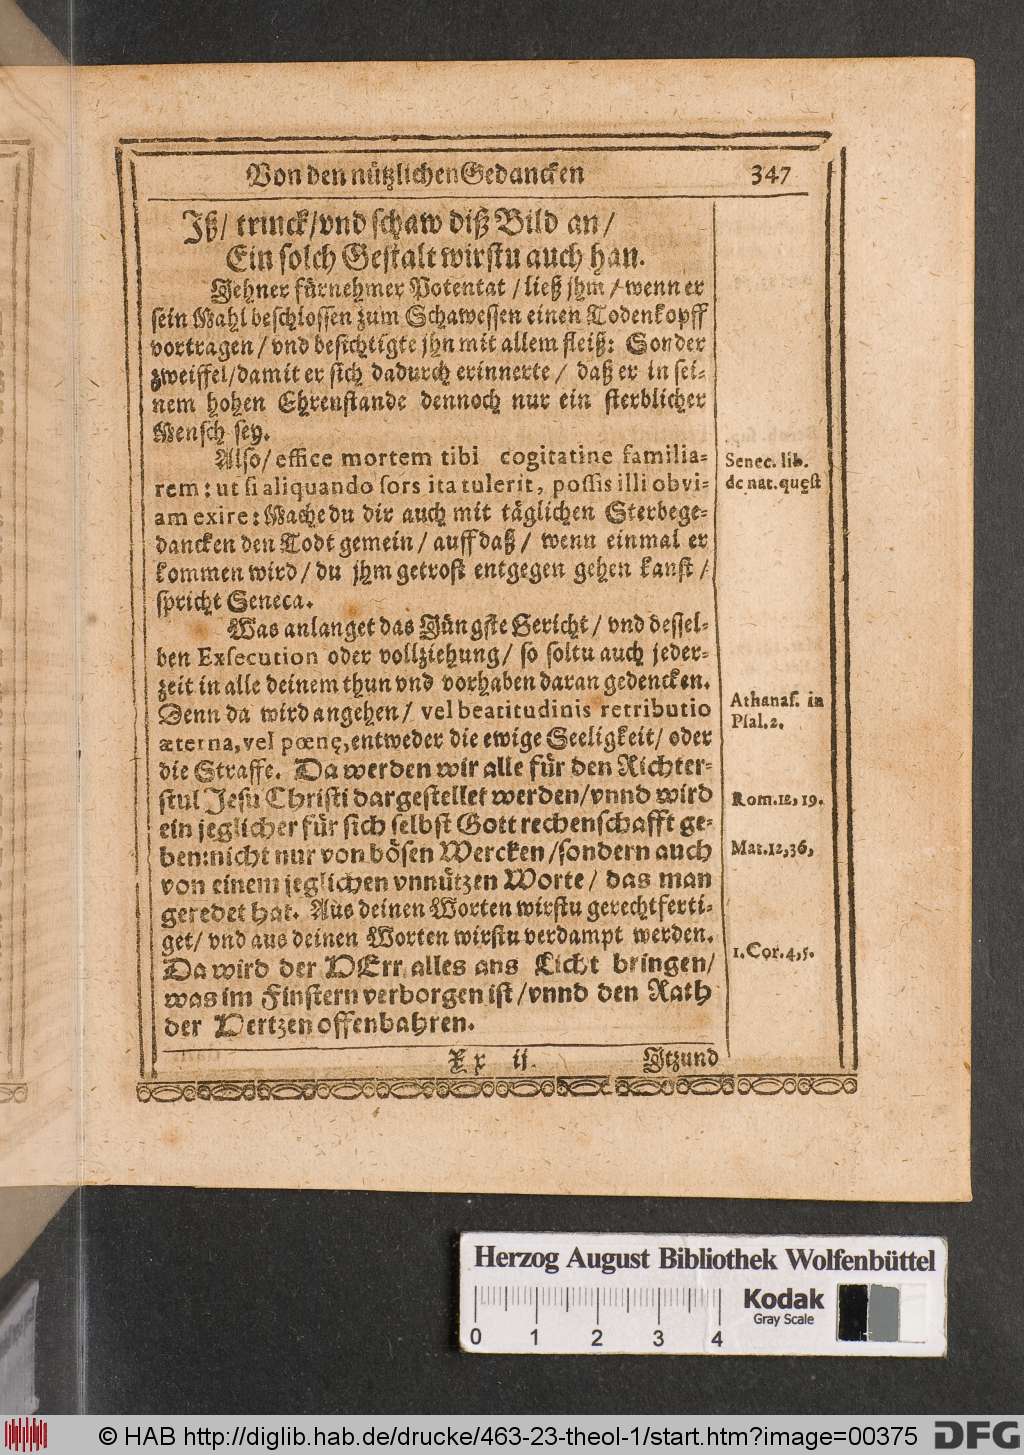 Von den nützlichen Gedancken 347
Iß/ trinck/vnd schaw diß Bild an/
Ein solch Gestalt wirstu auch han.
Jehner fürnehmer Potentat / ließ jhm / wenn er
sein Mahl beschlossen zum Schawessen einen Todenkopff
vortragen / vnd besichtigte jhn mit allem fleiß: Sonder
zweiffel/damit er sich dadurch erinnerte / daß er in sei-
nem hohen Ehrenstande dennoch nur ein sterblicher
Mensch sey.
Also/ effice mortem tibi cogitatine familia-
rem: ut si aliquando sors ita tulerit, possis illi obvi-
am exire: Mache du dir auch mit täglichen Sterbege-
dancken den Todt gemein / auff daß / wenn einmal er
kommen wird / du jhm getrost entgegen gehen kanst /
spricht Seneca.
Senec. lib.
de nat. quęst
Was anlanget das Jüngste Gericht / vnd dessel-
ben Exsecution oder vollziehung / so soltu auch jeder-
zeit in alle deinem thun vnd vorhaben daran gedencken.
Denn da wird angehen / vel beatitudinis retributio
æterna, vel pœnę, entweder die ewige Seeligkeit / oder
die Straffe. Da werden wir alle für den Richter-
stul Jesu Christi dargestellet werden / vnnd wird
ein jeglicher für sich selbst Gott rechenschafft ge-
ben: nicht nur von bösen Wercken / sondern auch
von einem jeglichen vnnützen Worte / das man
geredet hat. Aus deinen Worten wirstu gerechtferti-
get / vnd aus deinen Worten wirstu verdampt werden.
Da wird der HErr alles ans Licht bringen /
was im Finstern verborgen ist / vnnd den Rath
der Hertzen offenbahren.
Athanas. in
Psal. 2.
Rom. 12, 19.
Mat. 12, 36,
1. Cor. 4, 5.
Xx ij. Jtzund
Herzog August Bibliothek Wolfenbüttel
Kodak
Gray Scale
0 1 2 3 4
© HAB http://diglib.hab.de/drucke/463-23-theol-1/start.htm?image=00375 DFG